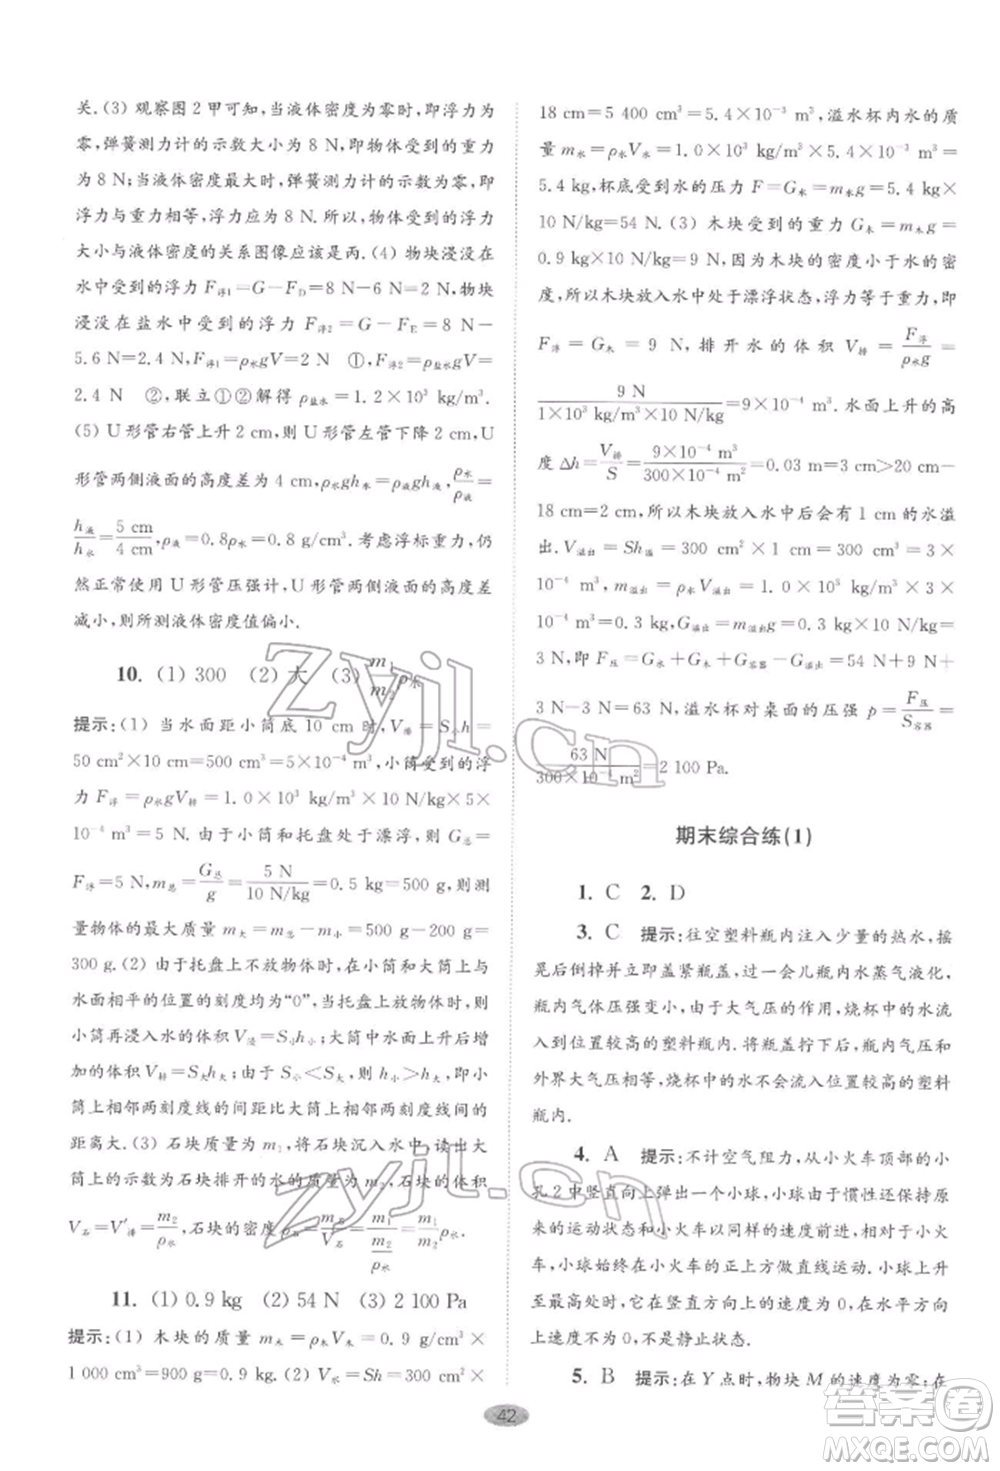 关. (3) 观察图 2 甲可知,当液体密度为零时,即浮力为
零,弹簧测力计的示数大小为 8 N,即物体受到的重力
为 8 N;当液体密度最大时,弹簧测力计的示数为零,即
浮力与重力相等,浮力应为 8 N. 所以,物体受到的浮力
大小与液体密度的关系图像应该是丙. (4) 物块浸没在
水中受到的浮力 F浮1=G-FD=8 N-6 N=2 N,物块
浸没在盐水中受到的浮力 F浮2=G-FE=8 N-
5.6 N=2.4 N,F浮1=ρ水gV=2 N ①,F浮2=ρ盐水gV=
2.4 N ②,联立①②解得 ρ盐水=1.2×10³ kg/m³.
(5) U 形管右管上升 2 cm,则 U 形管左管下降 2 cm,U
形管两侧液面的高度差为 4 cm,ρ水gh水=ρ液gh液,ρ水/ρ液=
h液/h水=5 cm/4 cm,ρ液=0.8ρ水=0.8 g/cm³. 考虑浮标重力,仍
然正常使用 U 形管压强计,U 形管两侧液面的高度差
减小,则所测液体密度值偏小.
10. (1) 300 (2) 大 (3) m₁/m₂ρ水
提示:(1) 当水面距小筒底 10 cm 时,V排=S小h=
50 cm²×10 cm=500 cm³=5×10⁻⁴ m³,小筒受到的浮
力 F浮=ρ水gV排=1.0×10³ kg/m³×10 N/kg×5×
10⁻⁴ m³=5 N. 由于小筒和托盘处于漂浮,则有 G总=
F浮=5 N,m总=G总/g=5 N/10 N/kg=0.5 kg=500 g,则测
量物体的最大质量 m大=m总-m小=500 g-200 g=
300 g. (2) 由于托盘上不放物体时,大筒和小筒上与
水面相平的位置的刻度均为“0”,当托盘上放物体时,小
筒再浸入水的体积 V浸=S小h小;大筒中水面上升增加
体积 V排=S大h大;由于 S小<S大,此时 h小>h大,即小
筒上相邻两刻度线的间距比大筒上相邻两刻度线间的
距离大. (3) 石块质量为 m₁,将石块沉入水中,读出大筒
上的示数为石块排开水的质量为 m₂,石块的体积
V石=V′排=m₂/ρ水,石块的密度 ρ石=m石/V石=m₁/(m₂/ρ水)=m₁/m₂ρ水.
11. (1) 0.9 kg (2) 54 N (3) 2 100 Pa
提示:(1) 木块的质量 m木=ρ木V木=0.9 g/cm³×
1 000 cm³=900 g=0.9 kg. (2) V水=Sh=300 cm²×
18 cm=5 400 cm³=5.4×10⁻³ m³,溢水杯内水的质
量 m水=ρ水V水=1.0×10³ kg/m³×5.4×10⁻³ m³=
5.4 kg,杯底受到水的压力 F=G水=m水g=5.4 kg
×10 N/kg=54 N. (3) 木块受到的重力 G木=m木g=
0.9 kg×10 N/kg=9 N,因为木块的密度小于水的密
度,所以木块放入水中处于漂浮状态,浮力等于重力,即
F浮=G木=9 N,排开水的体积 V排=F浮/ρ水g=
9 N/1×10³ kg/m³×10 N/kg=9×10⁻⁴ m³. 水面上升的高
度 Δh=V排/S=9×10⁻⁴ m³/300×10⁻⁴ m²=0.03 m=3 cm>20 cm-
18 cm=2 cm,所以木块放入水中后会有 1 cm 的水溢
出. V溢出=Sh溢=300 cm²×1 cm=300 cm³=3×
10⁻⁴ m³,m溢出=ρ水V溢出=1.0×10³ kg/m³×3×
10⁻⁴ m³=0.3 kg,G溢出=m溢出g=0.3 kg×10 N/kg=
3 N,则 F压=G水+G木+G容器-G溢出=54 N+9 N+
3 N-3 N=63 N,溢水杯对桌面的压强 p=F压/S容器=
63 N/300×10⁻⁴ m²=2 100 Pa.
期末综合练(1)
1. C 2. D
3. C 提示:往空塑料瓶内注入少量的热水,摇
晃后倒掉并立即盖紧瓶盖,过一会儿瓶内水蒸气液化,
瓶内气体压强变小,由于大气压的作用,烧杯中的水流
入位置较高的塑料瓶内. 将瓶盖拧下后,瓶内气压和
外界大气压相同,烧杯中的水不会流入位置较高的塑料
瓶内.
4. A 提示:不计空气阻力,从小火车顶部的小
孔 2 中竖直向上弹出一个小球,小球由于惯性还保持原
来的运动状态和小火车以同样的速度前进,对于小火车
小球始终在小火车的正上方做直线运动. 小球上升至
最高处时,它在竖直方向上的速度为 0,在水平方向上
速度不为 0,不是静止状态.
5. B 提示:在 Y 点时,物块 M 的速度为零;在
42
zyjl.cn
zyjl.cn
答案圈
MXQE.COM